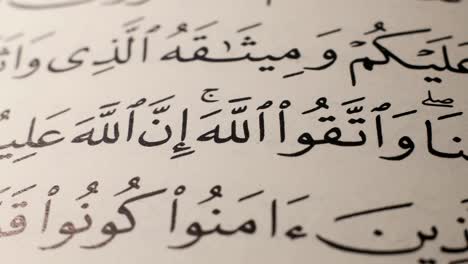 عَلَيْكُمْ وَمِيثَـٰقَهُ ٱلَّذِى وَاثَ
نَا ۖ وَٱتَّقُوا۟ ٱللَّهَ ۚ إِنَّ ٱللَّهَ عَلِي
ذِينَ ءَامَنُوا۟ كُونُوا۟ قَوَّ